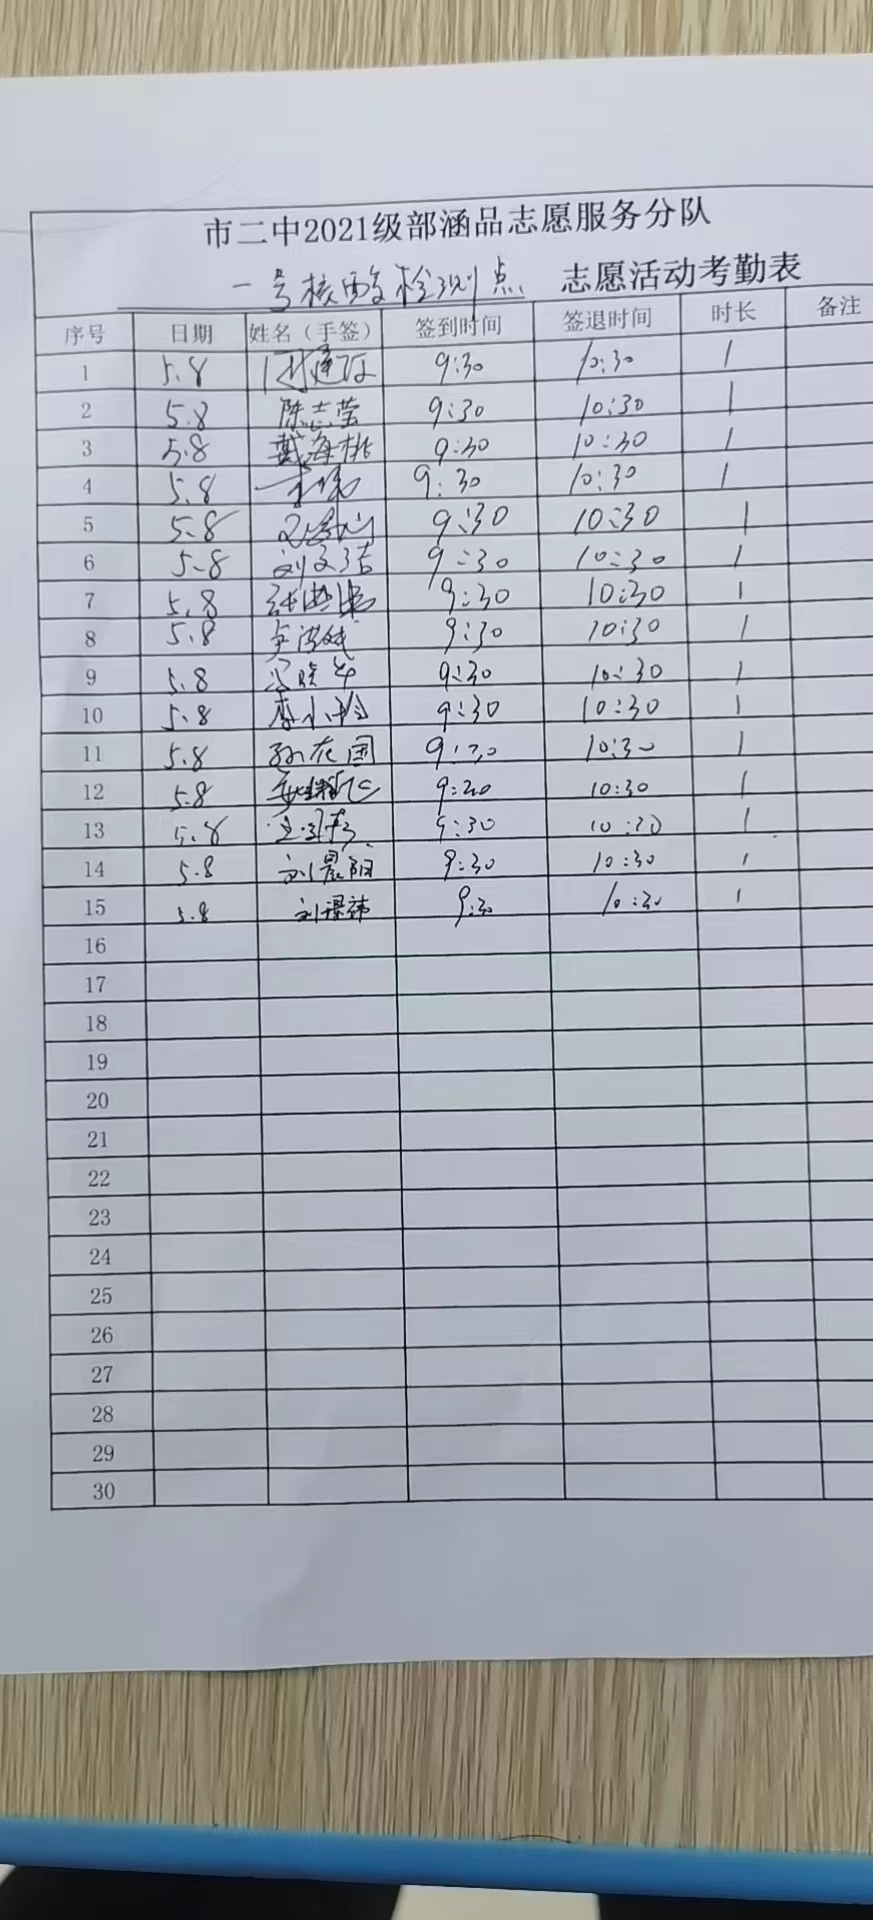 市二中2021级部涵品志愿服务分队
一号核酸检测点 志愿活动考勤表
序号 日期 姓名（手签） 签到时间 签退时间 时长 备注
1 5.8 9:30 10:30 1
2 5.8 陈志莹 9:30 10:30 1
3 5.8 戴海桃 9:30 10:30 1
4 5.8 9:30 10:30 1
5 5.8 9:30 10:30 1
6 5.8 刘文洁 9:30 10:30 1
7 5.8 9:30 10:30 1
8 5.8 9:30 10:30 1
9 5.8 9:30 10:30 1
10 5.8 李小玲 9:30 10:30 1
11 5.8 孙在国 9:30 10:30 1
12 5.8 9:30 10:30 1
13 5.8 9:30 10:30 1
14 5.8 刘晨阳 9:30 10:30 1
15 5.8 刘璟祎 9:30 10:30 1
16
17
18
19
20
21
22
23
24
25
26
27
28
29
30